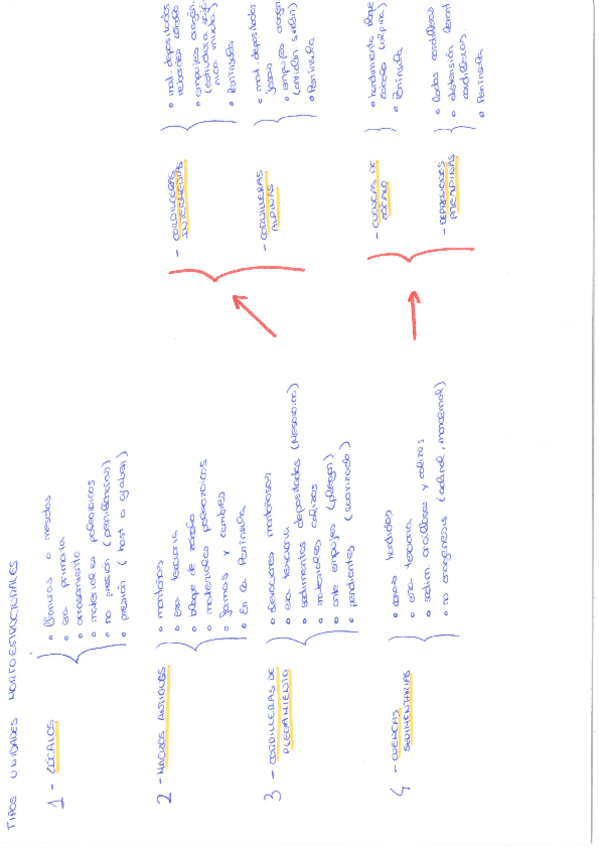 TIPOS UNIDADES MORFOESTRUCTURALES
1 - ZÓCALOS
• llanuras o mesetas
• era primaria
• arrasamiento
• materiales paleozoicos
• no presión (penillanuras)
• presión (horst o graben)
2 - MACIZOS ANTIGUOS
• montañas
• era terciaria
• bloque de zócalo
• materiales paleozoicos
• formas y cumbres
• En la Península
3 - CORDILLERAS DE
PLEGAMIENTO
• elevaciones montañosas
• era terciaria
• sedimentos depositados (Mesozoico)
• materiales calizos
• ante empujes (pliegan)
• pendientes (suavizado)
- CORDILLERAS
INTERMEDIAS
• mat. depositados
rebordes zócalo
• empujes orogén.
• Península
- CORDILLERAS
ALPINAS
• mat. depositados
fosas
• empujes orogén
• Península
4 - CUENCAS
SEDIMENTARIAS
• zonas hundidas
• era terciaria
• sedim. arcillosos y calizos
• no orogénesis (aclinal, monoclinal)
- CUENCAS DE
ZÓCALO
• hundimiento bloque
zócalo (alpina)
• Península
- DEPRESIONES
PREALPINAS
• lados cordilleras
• distensión
cordilleras.
• Península